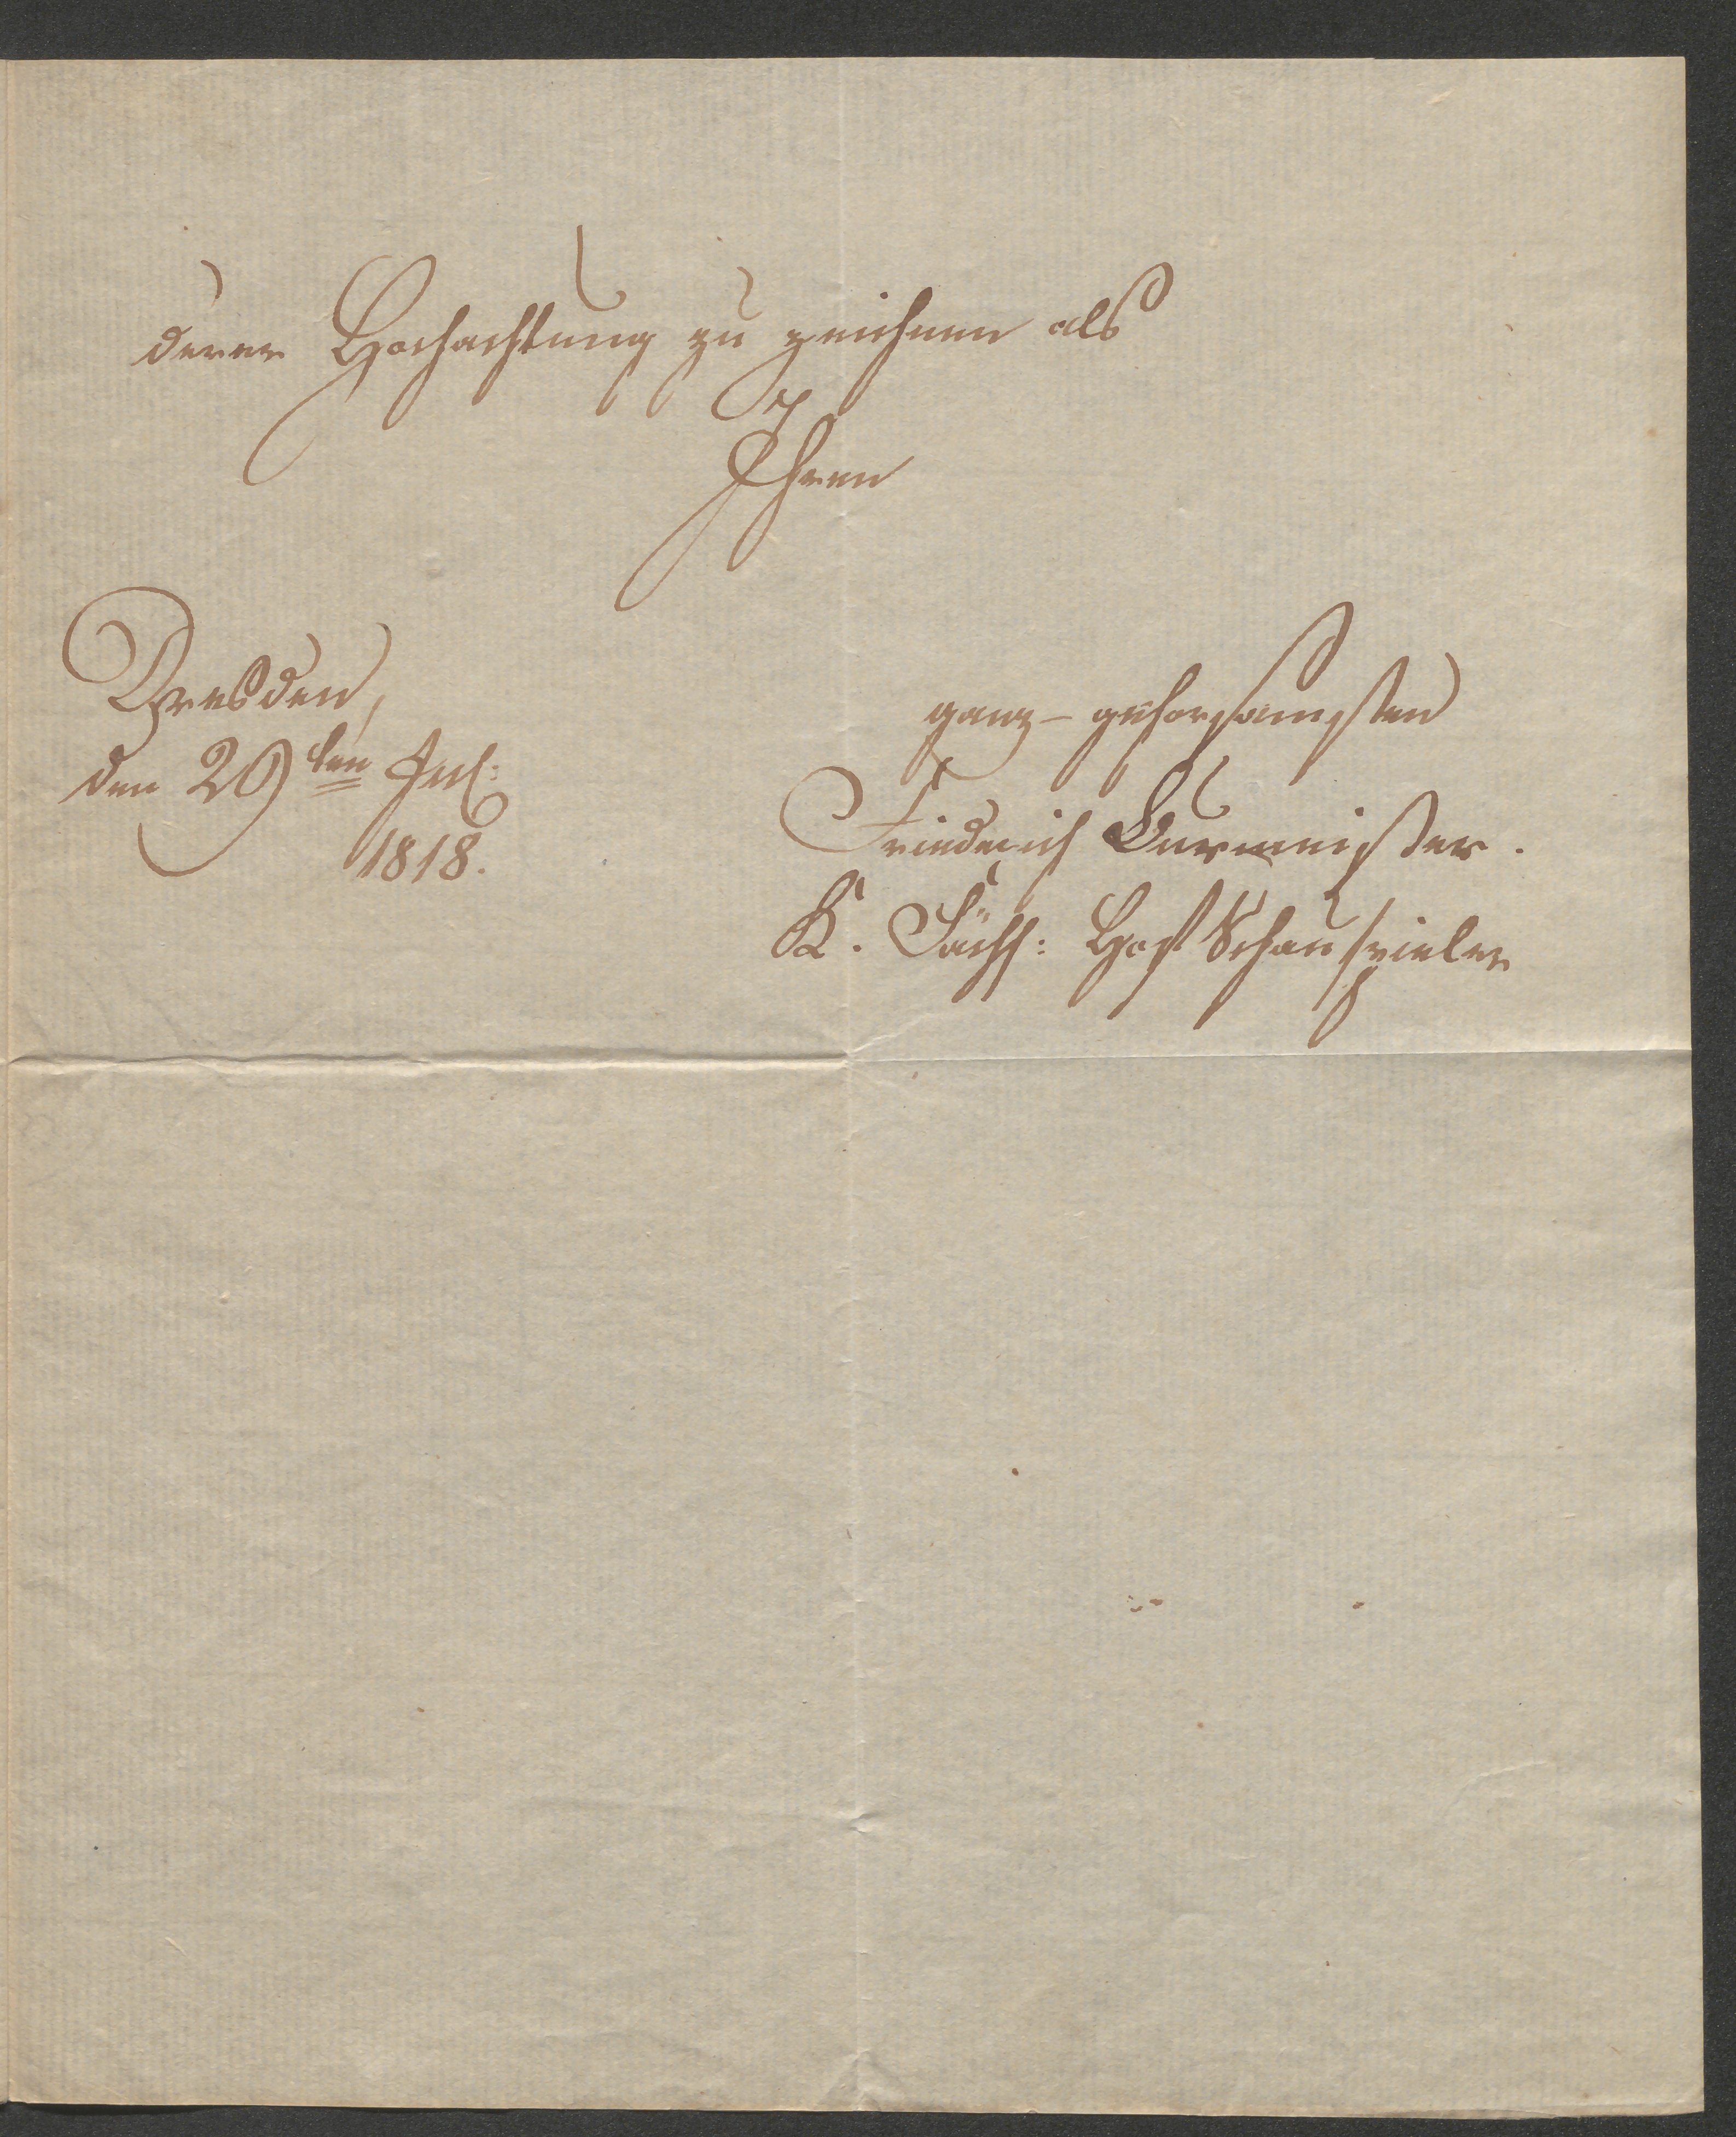 derer Hochachtung zu zeichnen als
Ihren
Dresden,
den 29ten Jul:
1818.
ganz-gehorsamsten
Friederich Burmeister.
K. Sächs: Hof Schauspieler